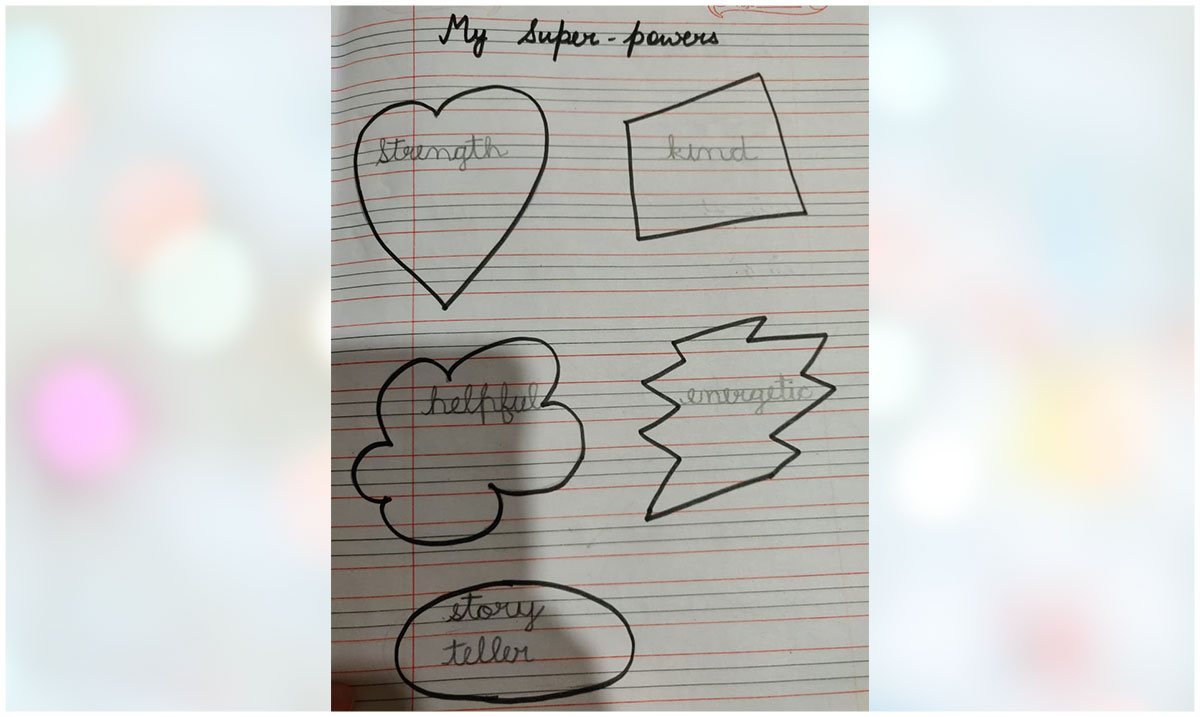 My Super-powers
strength
kind
helpful
energetic
story
teller